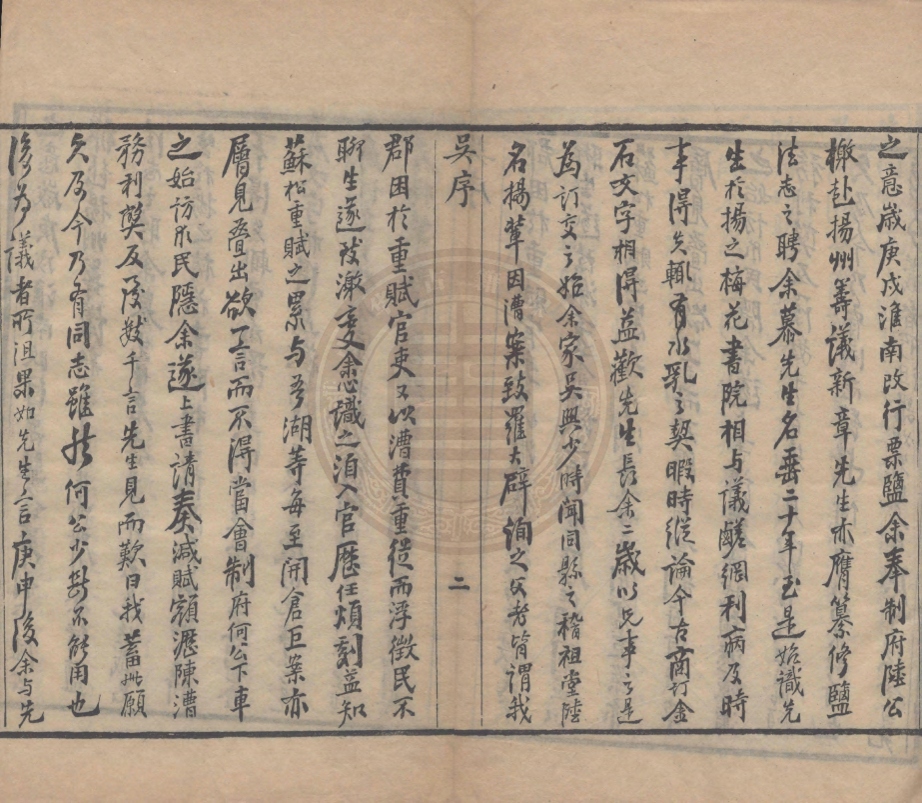 之意歲庚戌淮南改行票鹽余奉制府陸公
檄赴揚州籌議新章先生亦膺纂修鹽
法志之聘余慕先生名垂二十年至是始識先
生於揚之梅花書院相與議鹺綱利病及時
事得失輒有水乳之契暇時縱論今古商訂金
石文字相得益歡先生長余二歲以兄事之是
為訂交之始余家吳興少時聞同縣之稽祖堂陸
名揚輩因漕案致罹大辟詢之父老皆謂我
吳序
二
郡困於重賦官吏又以漕費重從而浮徵民不
聊生遂致激變余志識之洎入官歷任煩劇益知
蘇松重賦之累與吾湖等每至開倉巨案亦
層見疊出欲一言而不得當會制府何公下車
之始訪求民隱余遂上書請奏減賦額瀝陳漕
務利獘反覆數千言先生見而歎曰我蓄此願
久及今乃有同志雖然何公少斷不能用也
後為議者所沮果如先生言庚申後余與先